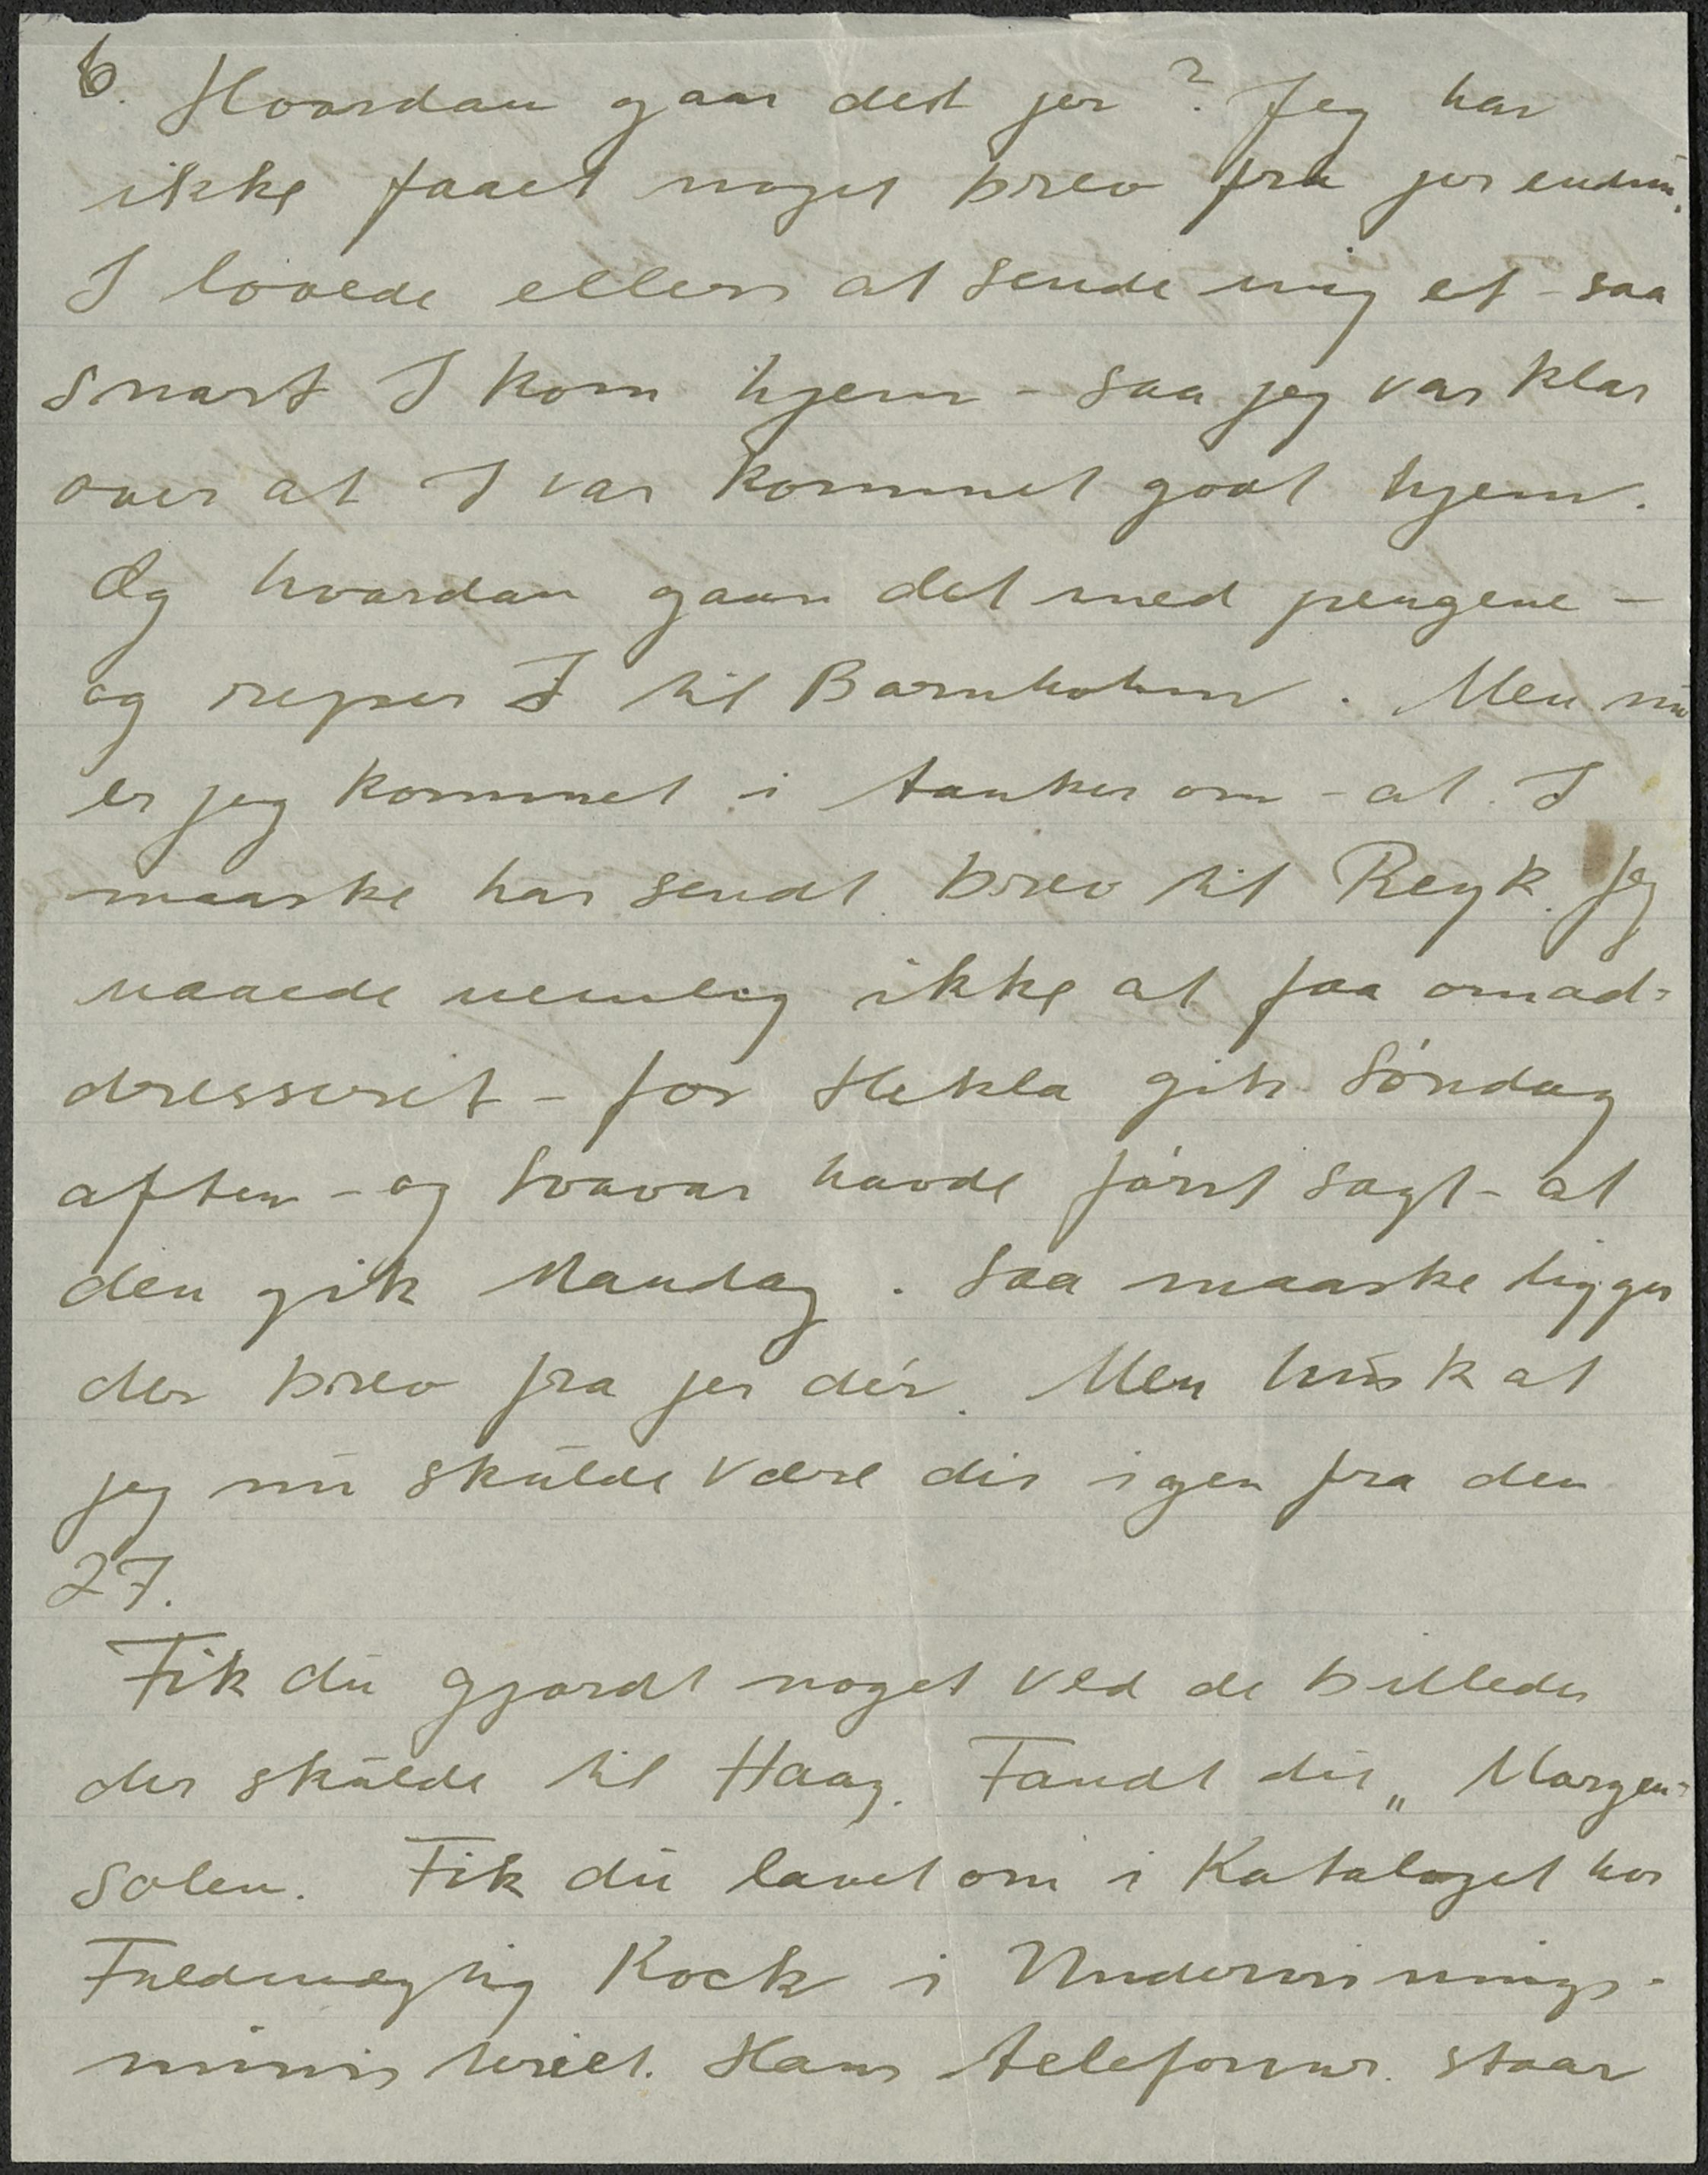 6. Hvordan gaar det jer? Jeg har
ikke faaet noget brev fra jer endnu.
I lovede ellers at sende mig et - saa
snart I kom hjem - saa jeg var klar
over at I var kommet godt hjem.
Og hvordan gaar det med pengene -
og rejser I til Bornholm. Men nu
er jeg kommet i tanker om - at I
maaske har sendt brev til Reyk. Jeg
naaede nemlig ikke at faa omad-
dresseret - for Hekla gik Søndag
aften - og Svavar havde først sagt - at
den gik Mandag. Saa maaske ligger
der brev fra jer dér. Men husk at
jeg nu skulde være dér igen fra den
27.
Fik du gjordt noget ved de billeder
der skulde til Haag. Fandt du „Morgen-
solen. Fik du lavet om i Kataloget hos
Fuldmægtig Kock i Undervisnings-
ministeriet. Hans telefonnr. staar